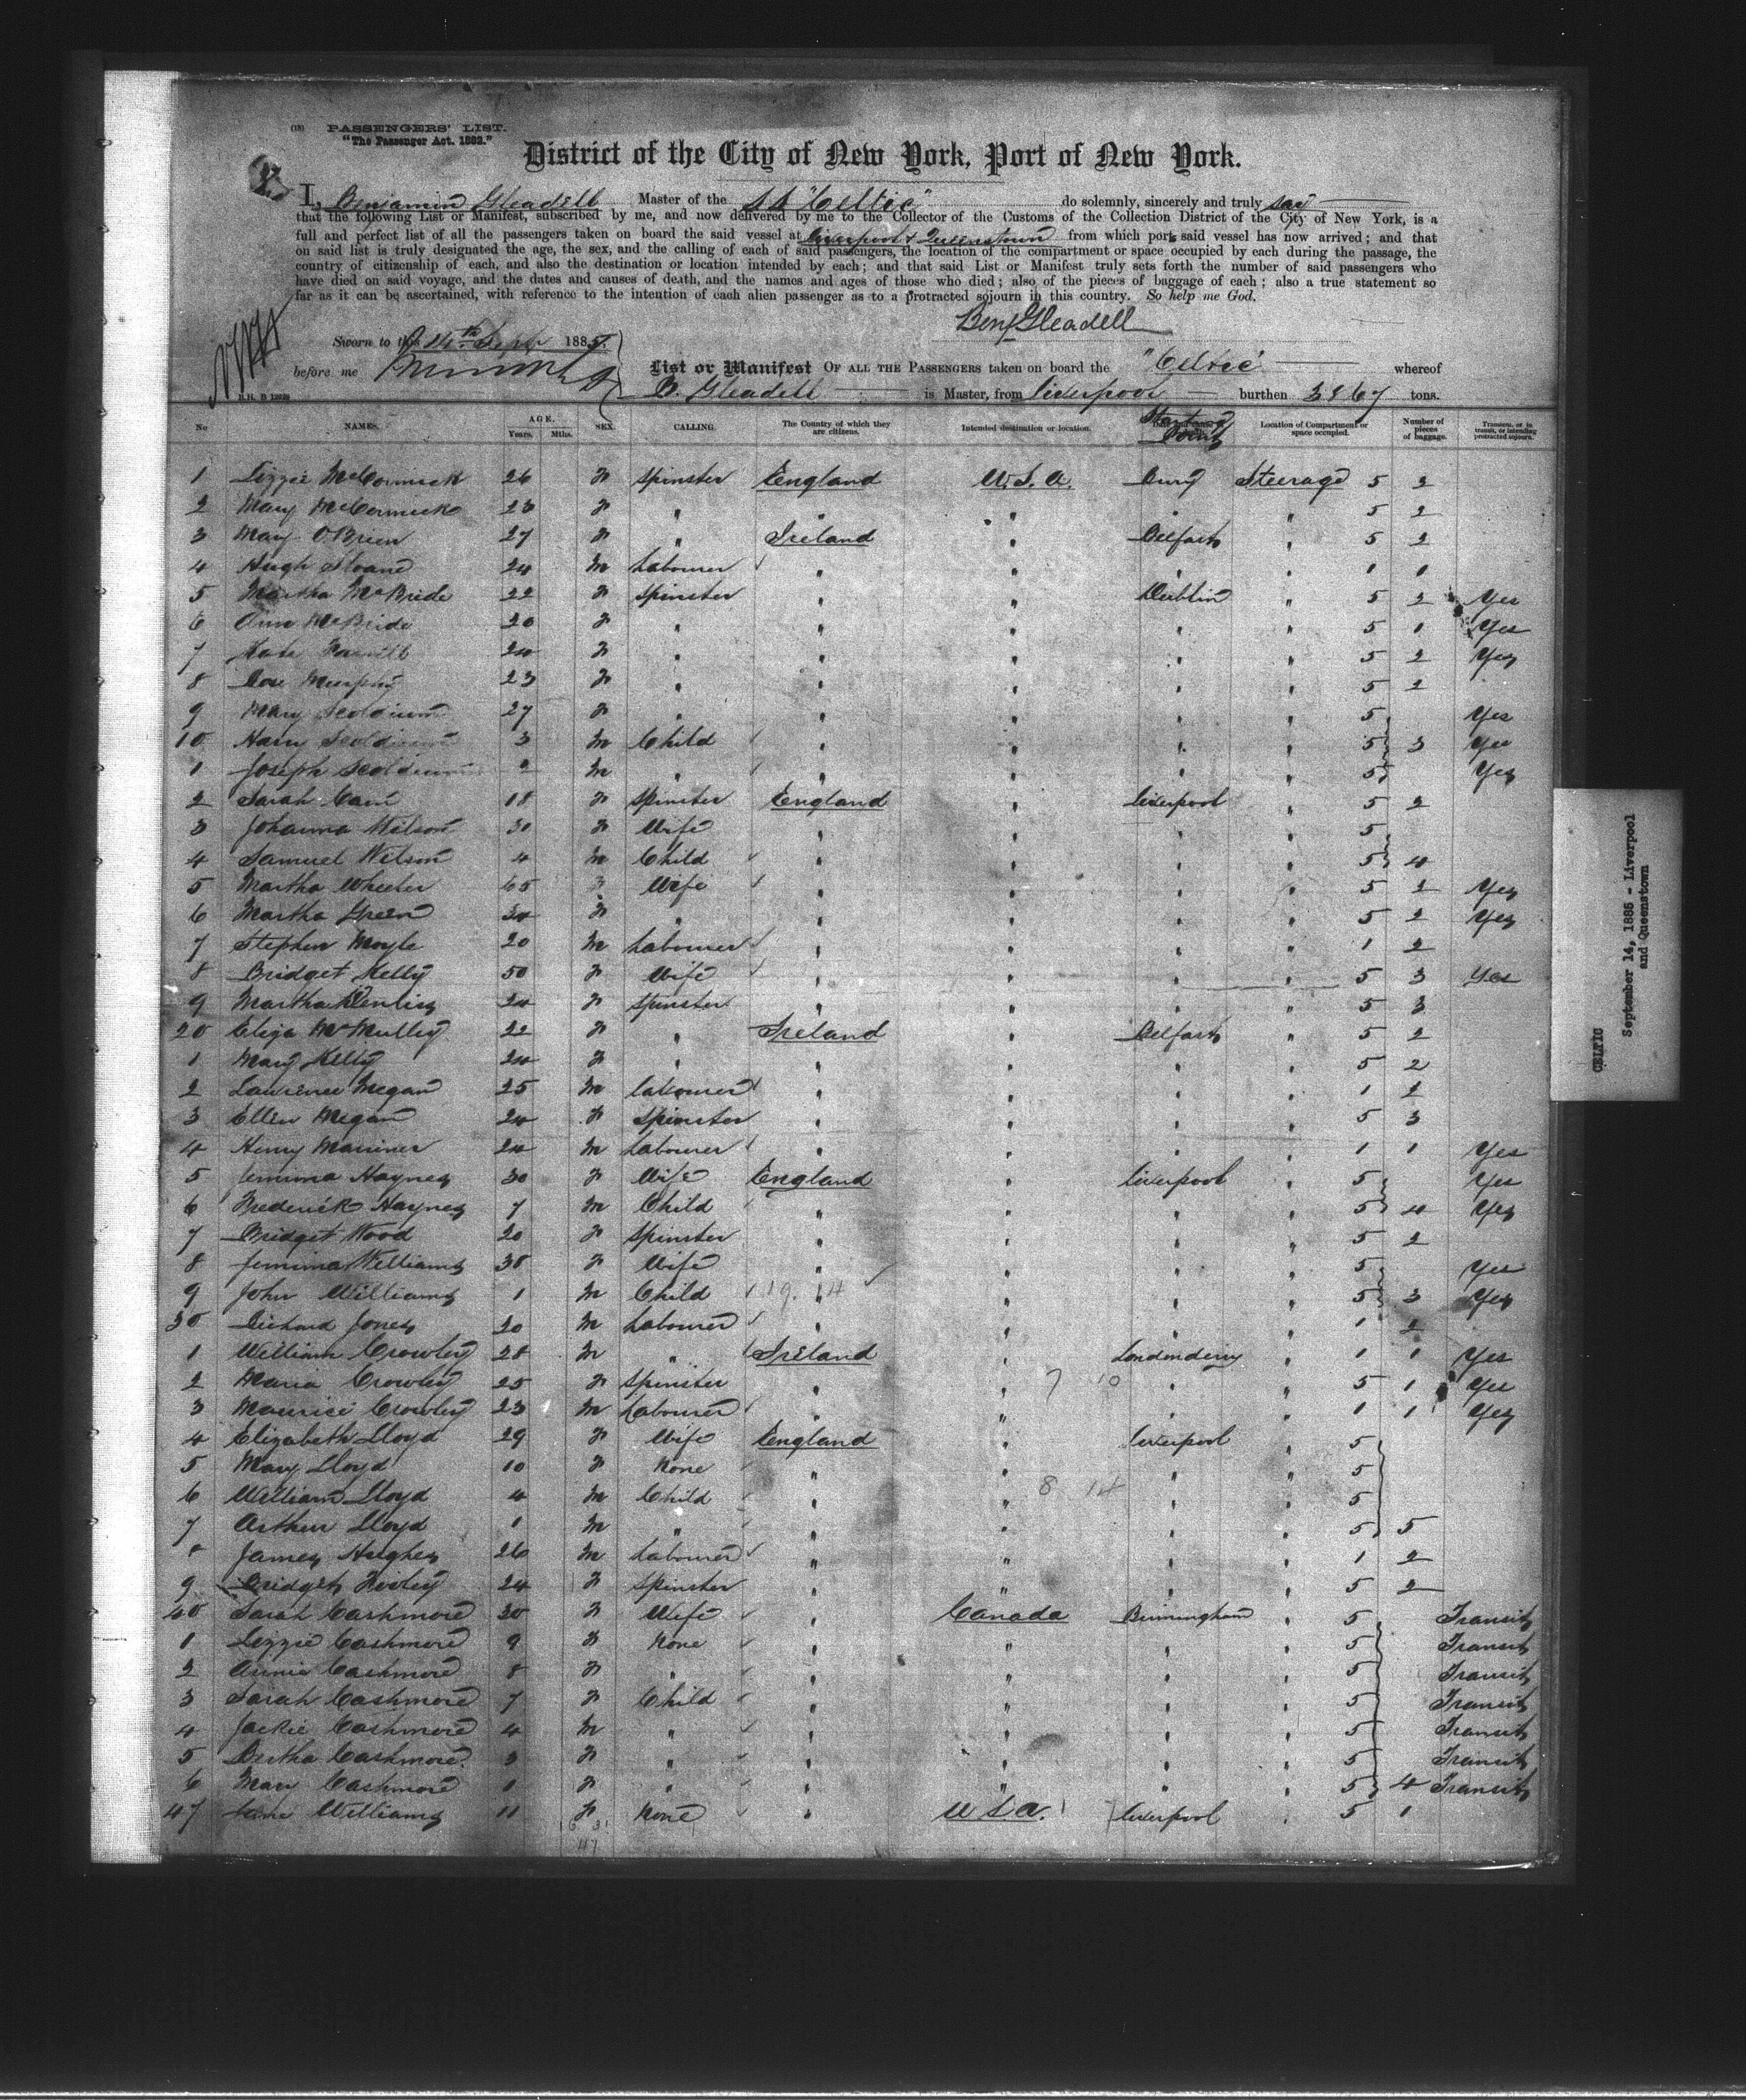 (13) PASSENGERS' LIST.
"The Passenger Act. 1882."
District of the City of New York, Port of New York.
I, Benjamin Gleadell Master of the SS "Celtic" do solemnly, sincerely and truly say
that the following List or Manifest, subscribed by me, and now delivered by me to the Collector of the Customs of the Collection District of the City of New York, is a
full and perfect list of all the passengers taken on board the said vessel at Liverpool & Queenstown from which port said vessel has now arrived; and that
on said list is truly designated the age, the sex, and the calling of each of said passengers, the location of the compartment or space occupied by each during the passage, the
country of citizenship of each, and also the destination or location intended by each; and that said List or Manifest truly sets forth the number of said passengers who
have died on said voyage, and the dates and causes of death, and the names and ages of those who died; also of the pieces of baggage of each; also a true statement so
far as it can be ascertained, with reference to the intention of each alien passenger as to a protracted sojourn in this country. So help me God.
Benj Gleadell
Sworn to this 14th Sept 1885
before me
List or Manifest OF ALL THE PASSENGERS taken on board the "Celtic" whereof
B. Gleadell is Master, from Liverpool burthen 3867 tons.
No NAMES. AGE. Years. Mths. SEX. CALLING. The Country of which they are citizens. Intended destination or location. Starting Point Location of Compartment or space occupied. Number of pieces of baggage. Transient, or in transit, or intending protracted sojourn.
1 Lizzie McCormick 26 F Spinster England U.S.A. Bury Steerage 5 2
2 Mary McCormick 23 F " " " " " 5 2
3 Mary O'Brien 27 F " Ireland " Belfast " 5 2
4 Hugh Sloane 24 M Labourer " " " " 1 1
5 Martha McBride 22 F Spinster " " Dublin " 5 2 Yes
6 Ann McBride 20 F " " " " " 5 1 Yes
7 Kate 24 F " " " " " 5 2 Yes
8 Rose Murphy 23 F " " " " " 5 2
9 Mary 27 F " " " " " 5 Yes
10 Harry 3 M Child " " " " 5 3 Yes
1 Joseph M " " " " " 5 Yes
2 Sarah 18 F Spinster England " Liverpool " 5 2
3 Johanna Wilson 30 F Wife " " " " 5
4 Samuel Wilson 4 M Child " " " " 5 4
5 Martha Wheeler 65 F Wife " " " " 5 2 Yes
6 Martha Green 34 F " " " " " 5 2 Yes
7 Stephen Moyle 20 M Labourer " " " " 1 2
8 Bridget Kelly 50 F Wife " " " " 5 3 Yes
9 Martha 24 F Spinster " " " " 5 3
20 Eliza McMulley 22 F " Ireland " Belfast " 5 2
1 Mary Kelly 24 F " " " " " 5 2
2 Lawrence Megan 25 M Labourer " " " " 1 2
3 Ellen Megan 24 F Spinster " " " " 5 3
4 Henry Marriner 24 M Labourer " " " " 1 1 Yes
5 Jemima Haynes 30 F Wife England " Liverpool " 5 Yes
6 Frederick Haynes 7 M Child " " " " 5 4 Yes
7 Bridget Wood 20 F Spinster " " " " 5 2
8 Jemima Williams 38 F Wife " " " " 5 Yes
9 John Williams 1 M Child 19. 14 " " " " 5 3 Yes
30 Richard Jones 20 M Labourer " " " " 1 2
1 William Crowley 28 M " Ireland " Londonderry " 1 1 Yes
2 Maria Crowley 25 F Spinster " " 7 10 " " 5 1 Yes
3 Maurice Crowley 23 M Labourer " " " " 1 1 Yes
4 Elizabeth Lloyd 29 F Wife England " Liverpool " 5
5 Mary Lloyd 10 F None " " " " 5
6 William Lloyd 4 M Child " " 8 14 " " 5
7 Arthur Lloyd 1 M " " " " " 5 5
8 James Hughes 26 M Labourer " " " " 1 2
9 Bridget 24 F Spinster " " " " 5 2
40 Sarah Cashmore 30 F Wife " Canada Birmingham " 5 Transit
1 Lizzie Cashmore 9 F None " " " " 5 Transit
2 Annie Cashmore 8 F " " " " " 5 Transit
3 Sarah Cashmore 7 F Child " " " " 5 Transit
4 Jackie Cashmore 4 M " " " " " 5 Transit
5 Bertha Cashmore 3 F " " " " " 5 Transit
6 Mary Cashmore 1 F " " " " " 5 4 Transit
47 Jane Williams 11 F None " U.S.A. Liverpool " 5 1
47
CELTIC
September 14, 1885 - Liverpool
and Queenstown